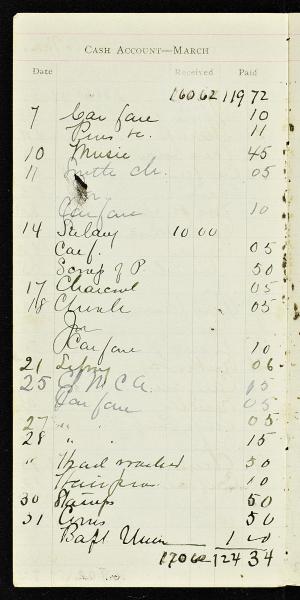 CASH ACCOUNT—MARCH
Date Received Paid
160 62 119 72
7 Car fare 10
Pins &c. 11
10 Music 45
11 05
Car fare 10
14 Salary 10 00
Carf. 05
Scrap of P. 50
17 Charcoal 05
18 Church 05
Car fare 10
21 06
25 Y.W.C.A. 15
Car fare 05
27 " " 05
28 " " 15
" Head washed 50
Hairpins 10
30 Stamps 50
31 50
Bapt Union 1 00
170 62 124 34